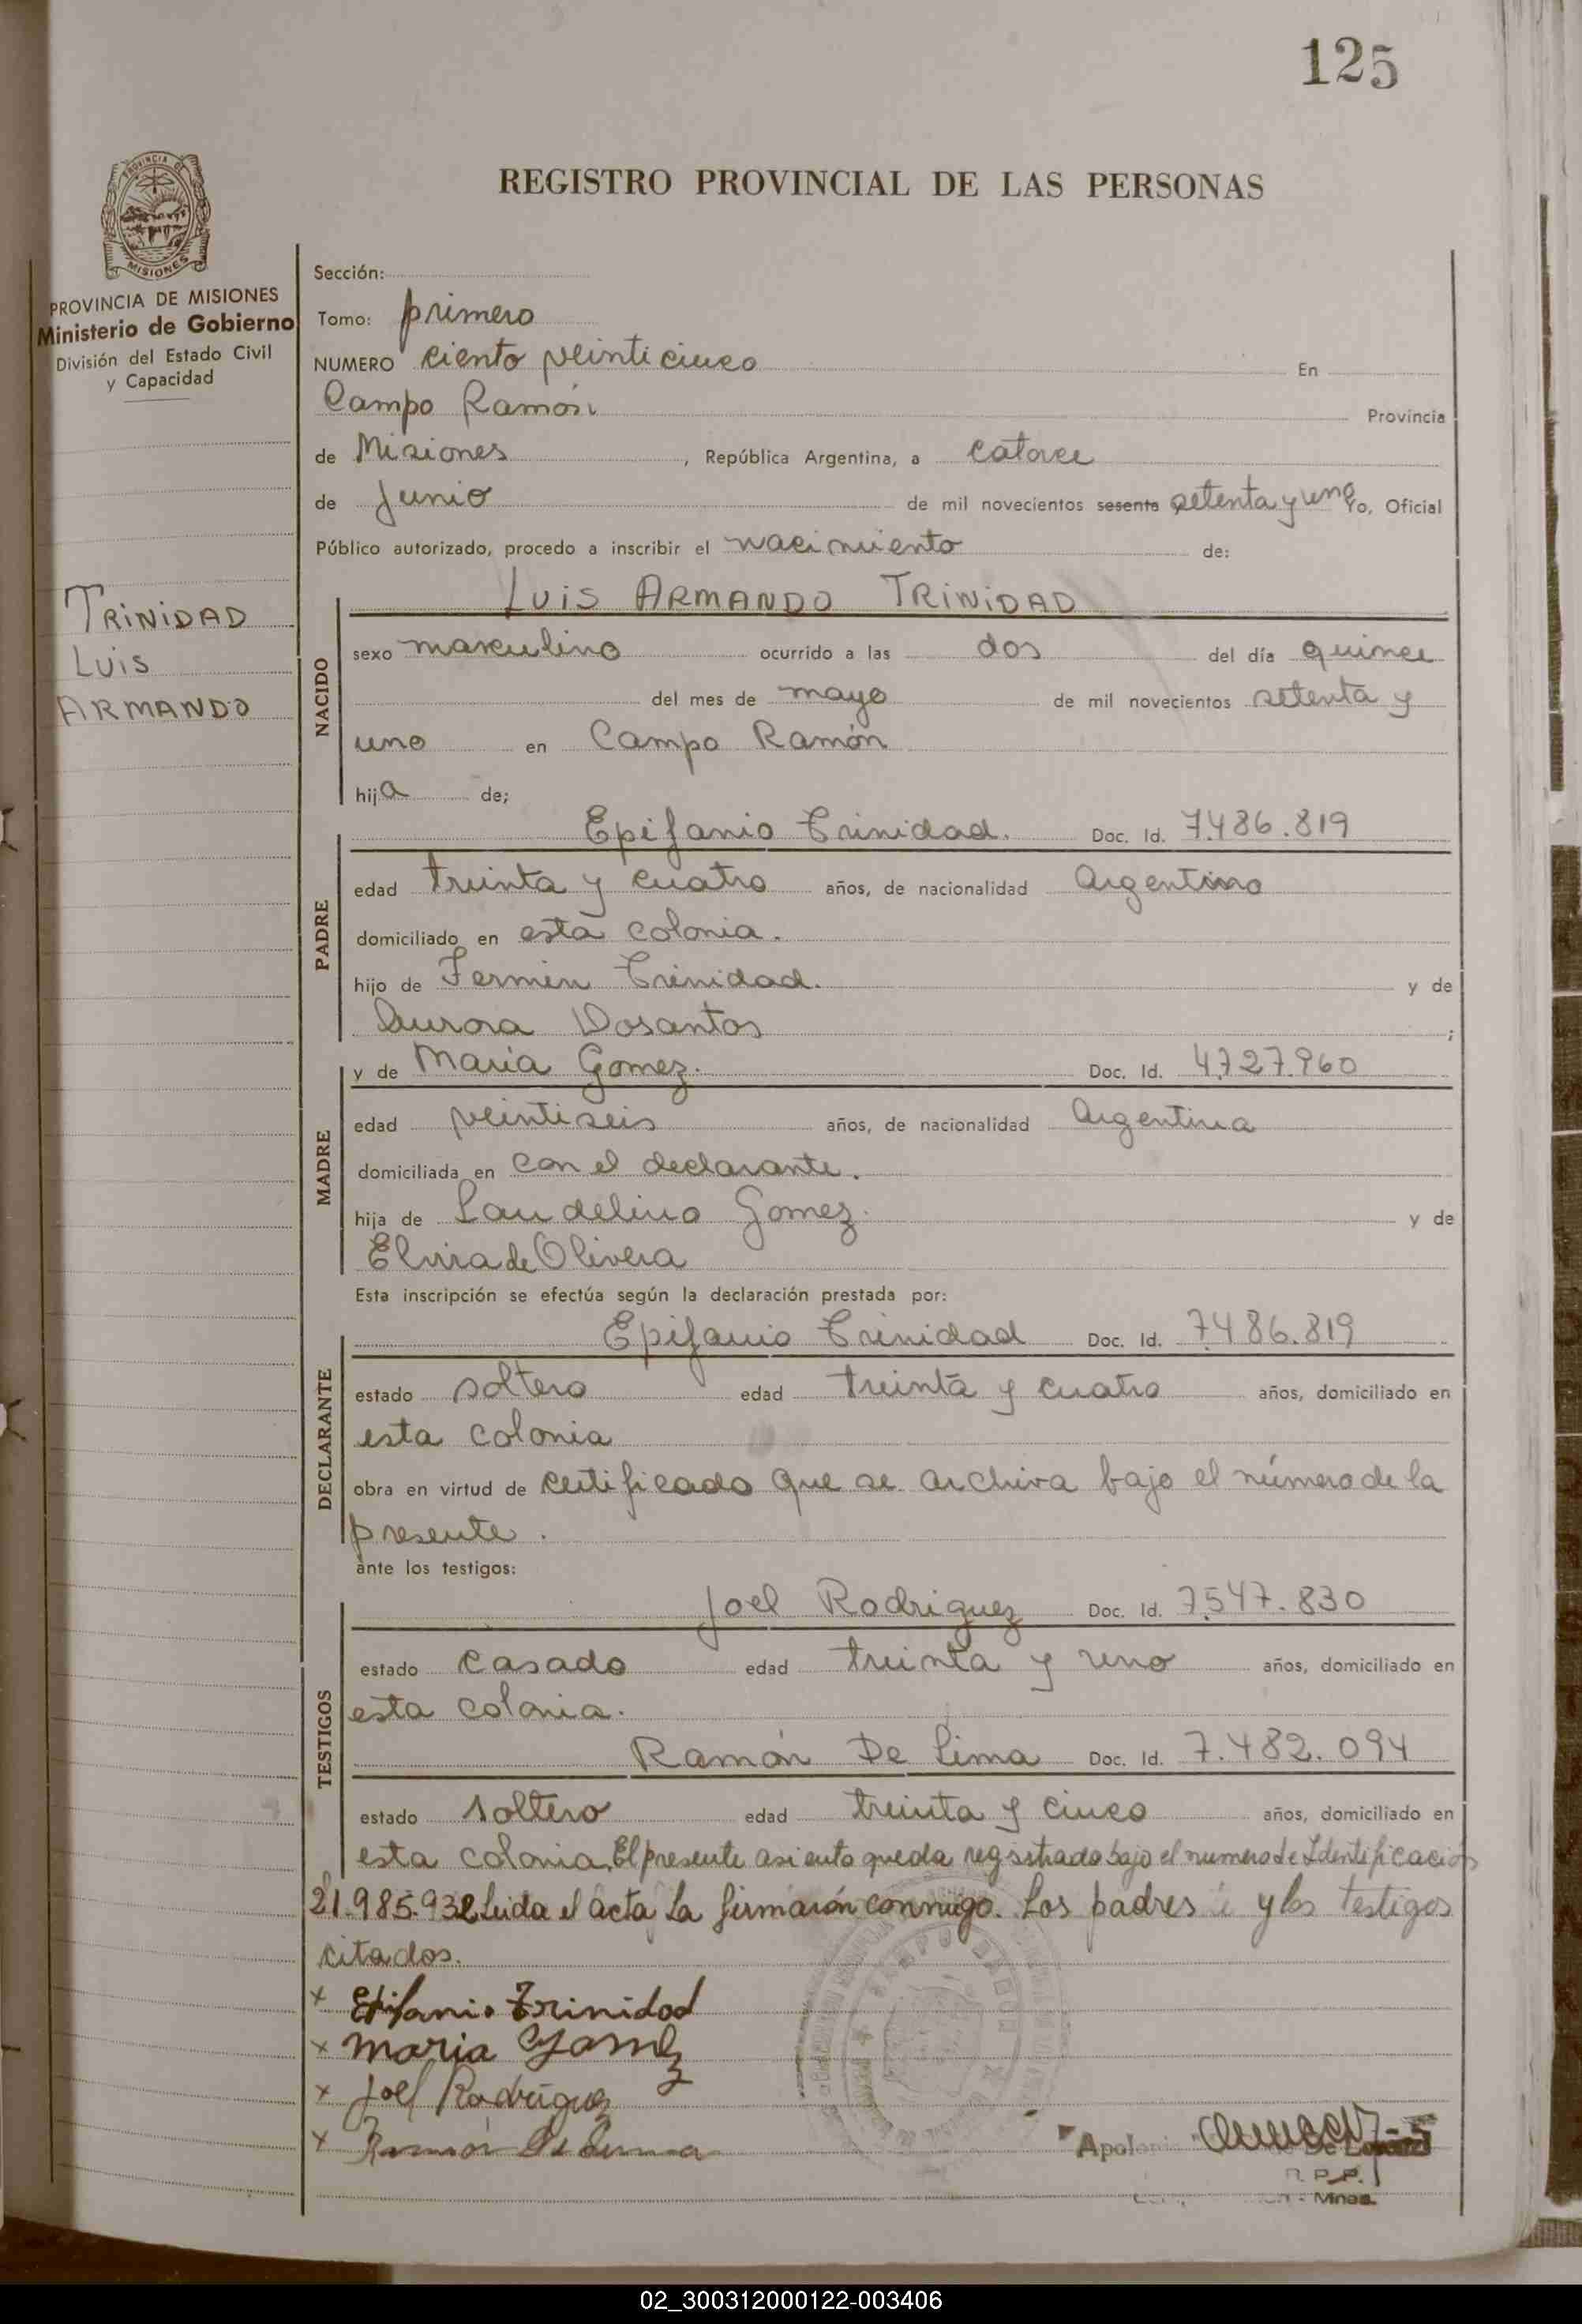 125
PROVINCIA DE
MISIONES
REGISTRO PROVINCIAL DE LAS PERSONAS
PROVINCIA DE MISIONES
Ministerio de Gobierno
División del Estado Civil
y Capacidad
TRINIDAD
LUIS
ARMANDO
Sección:
Tomo: primero
NUMERO ciento veinticinco En
Campo Ramón Provincia
de Misiones, República Argentina, a catorce
de Junio de mil novecientos sesenta setenta y uno Yo, Oficial
Público autorizado, procedo a inscribir el nacimiento de:
NACIDO
LUIS ARMANDO TRINIDAD
sexo masculino ocurrido a las dos del día quince
del mes de mayo de mil novecientos setenta y
uno en Campo Ramón
hija de;
PADRE
Epifanio Trinidad. Doc. Id. 7.486.819
edad treinta y cuatro años, de nacionalidad Argentino
domiciliado en esta colonia.
hijo de Fermin Trinidad. y de
Aurora Dosantos ;
MADRE
y de Maria Gomez. Doc. Id. 4.727.960
edad veintiseis años, de nacionalidad Argentina
domiciliada en con el declarante.
hija de Laudelino Gomez. y de
Elvira de Olivera
Esta inscripción se efectúa según la declaración prestada por:
DECLARANTE
Epifanio Trinidad Doc. Id. 7.486.819
estado soltero edad treinta y cuatro años, domiciliado en
esta colonia
obra en virtud de certificado que se archiva bajo el número de la
presente.
ante los testigos:
TESTIGOS
Joel Rodriguez Doc. Id. 7.547.830
estado casado edad treinta y uno años, domiciliado en
esta colonia.
Ramón De Lima Doc. Id. 7.482.094
estado soltero edad treinta y cinco años, domiciliado en
esta colonia. El presente asiento queda registrado bajo el numero de Identificación
21.985.932 Leida el acta La firmarón conmigo. Los padres y los testigos
citados.
x Epifanio Trinidad
x Maria Gomez
x Joel Rodriguez
x Ramón De Lima
R.P.P.
02_300312000122-003406